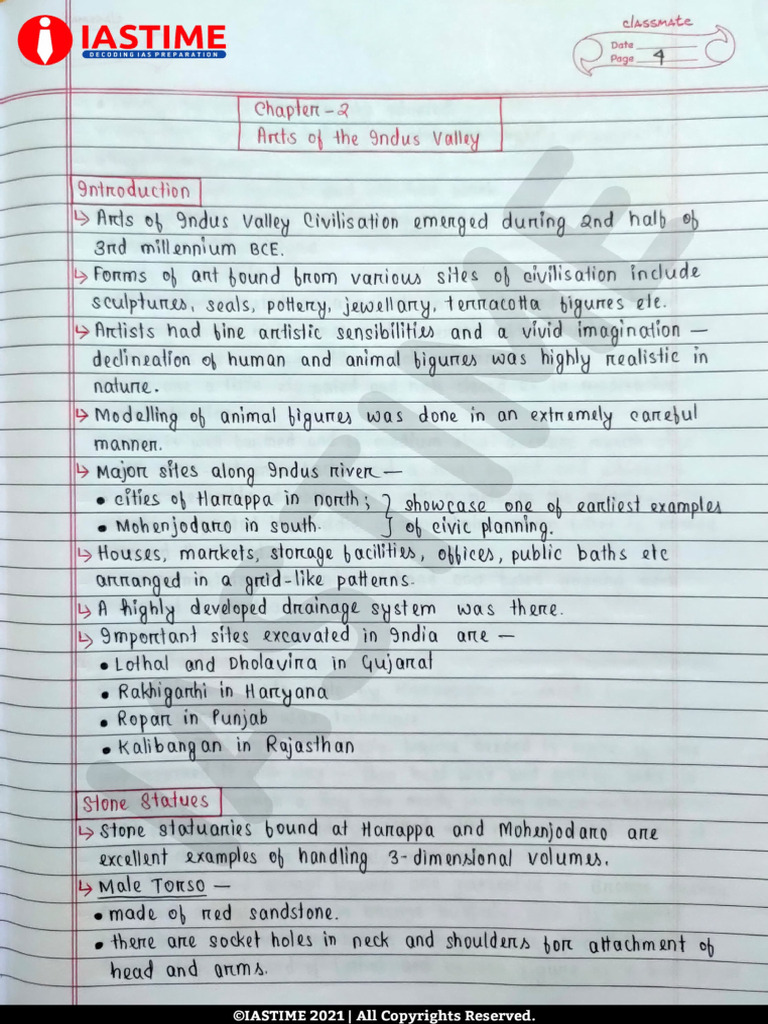 IASTIME
DECODING IAS PREPARATION
classmate
Date
Page 4
Chapter-2
Arts of the Indus Valley
Introduction
↳ Arts of Indus Valley Civilisation emerged during 2nd half of
3rd millennium BCE.
↳ Forms of art found from various sites of civilisation include
sculptures, seals, pottery, jewellary, terracotta figures etc.
↳ Artists had fine artistic sensibilities and a vivid imagination —
declineation of human and animal figures was highly realistic in
nature.
↳ Modelling of animal figures was done in an extremely careful
manner.
↳ Major sites along Indus river —
• cities of Harappa in north; } showcase one of earliest examples
• Mohenjodaro in south. } of civic planning.
↳ Houses, markets, storage facilities, offices, public baths etc
arranged in a grid-like patterns.
↳ A highly developed drainage system was there.
↳ Important sites excavated in India are —
• Lothal and Dholavira in Gujarat
• Rakhigarhi in Haryana
• Ropar in Punjab
• Kalibangan in Rajasthan
Stone Statues
↳ Stone statuaries found at Harappa and Mohenjodaro are
excellent examples of handling 3-dimensional volumes.
↳ Male Torso —
• made of red sandstone.
• there are socket holes in neck and shoulders for attachment of
head and arms.
IASTIME
©IASTIME 2021| All Copyrights Reserved.